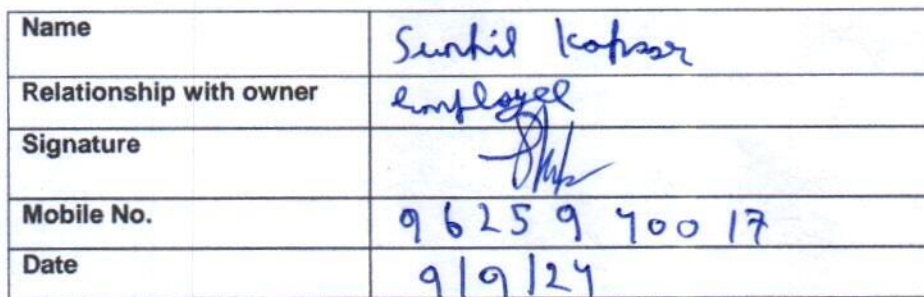 Name Sunhil Kapoor
Relationship with owner employee
Signature
Mobile No. 96259 40017
Date 9/9/24